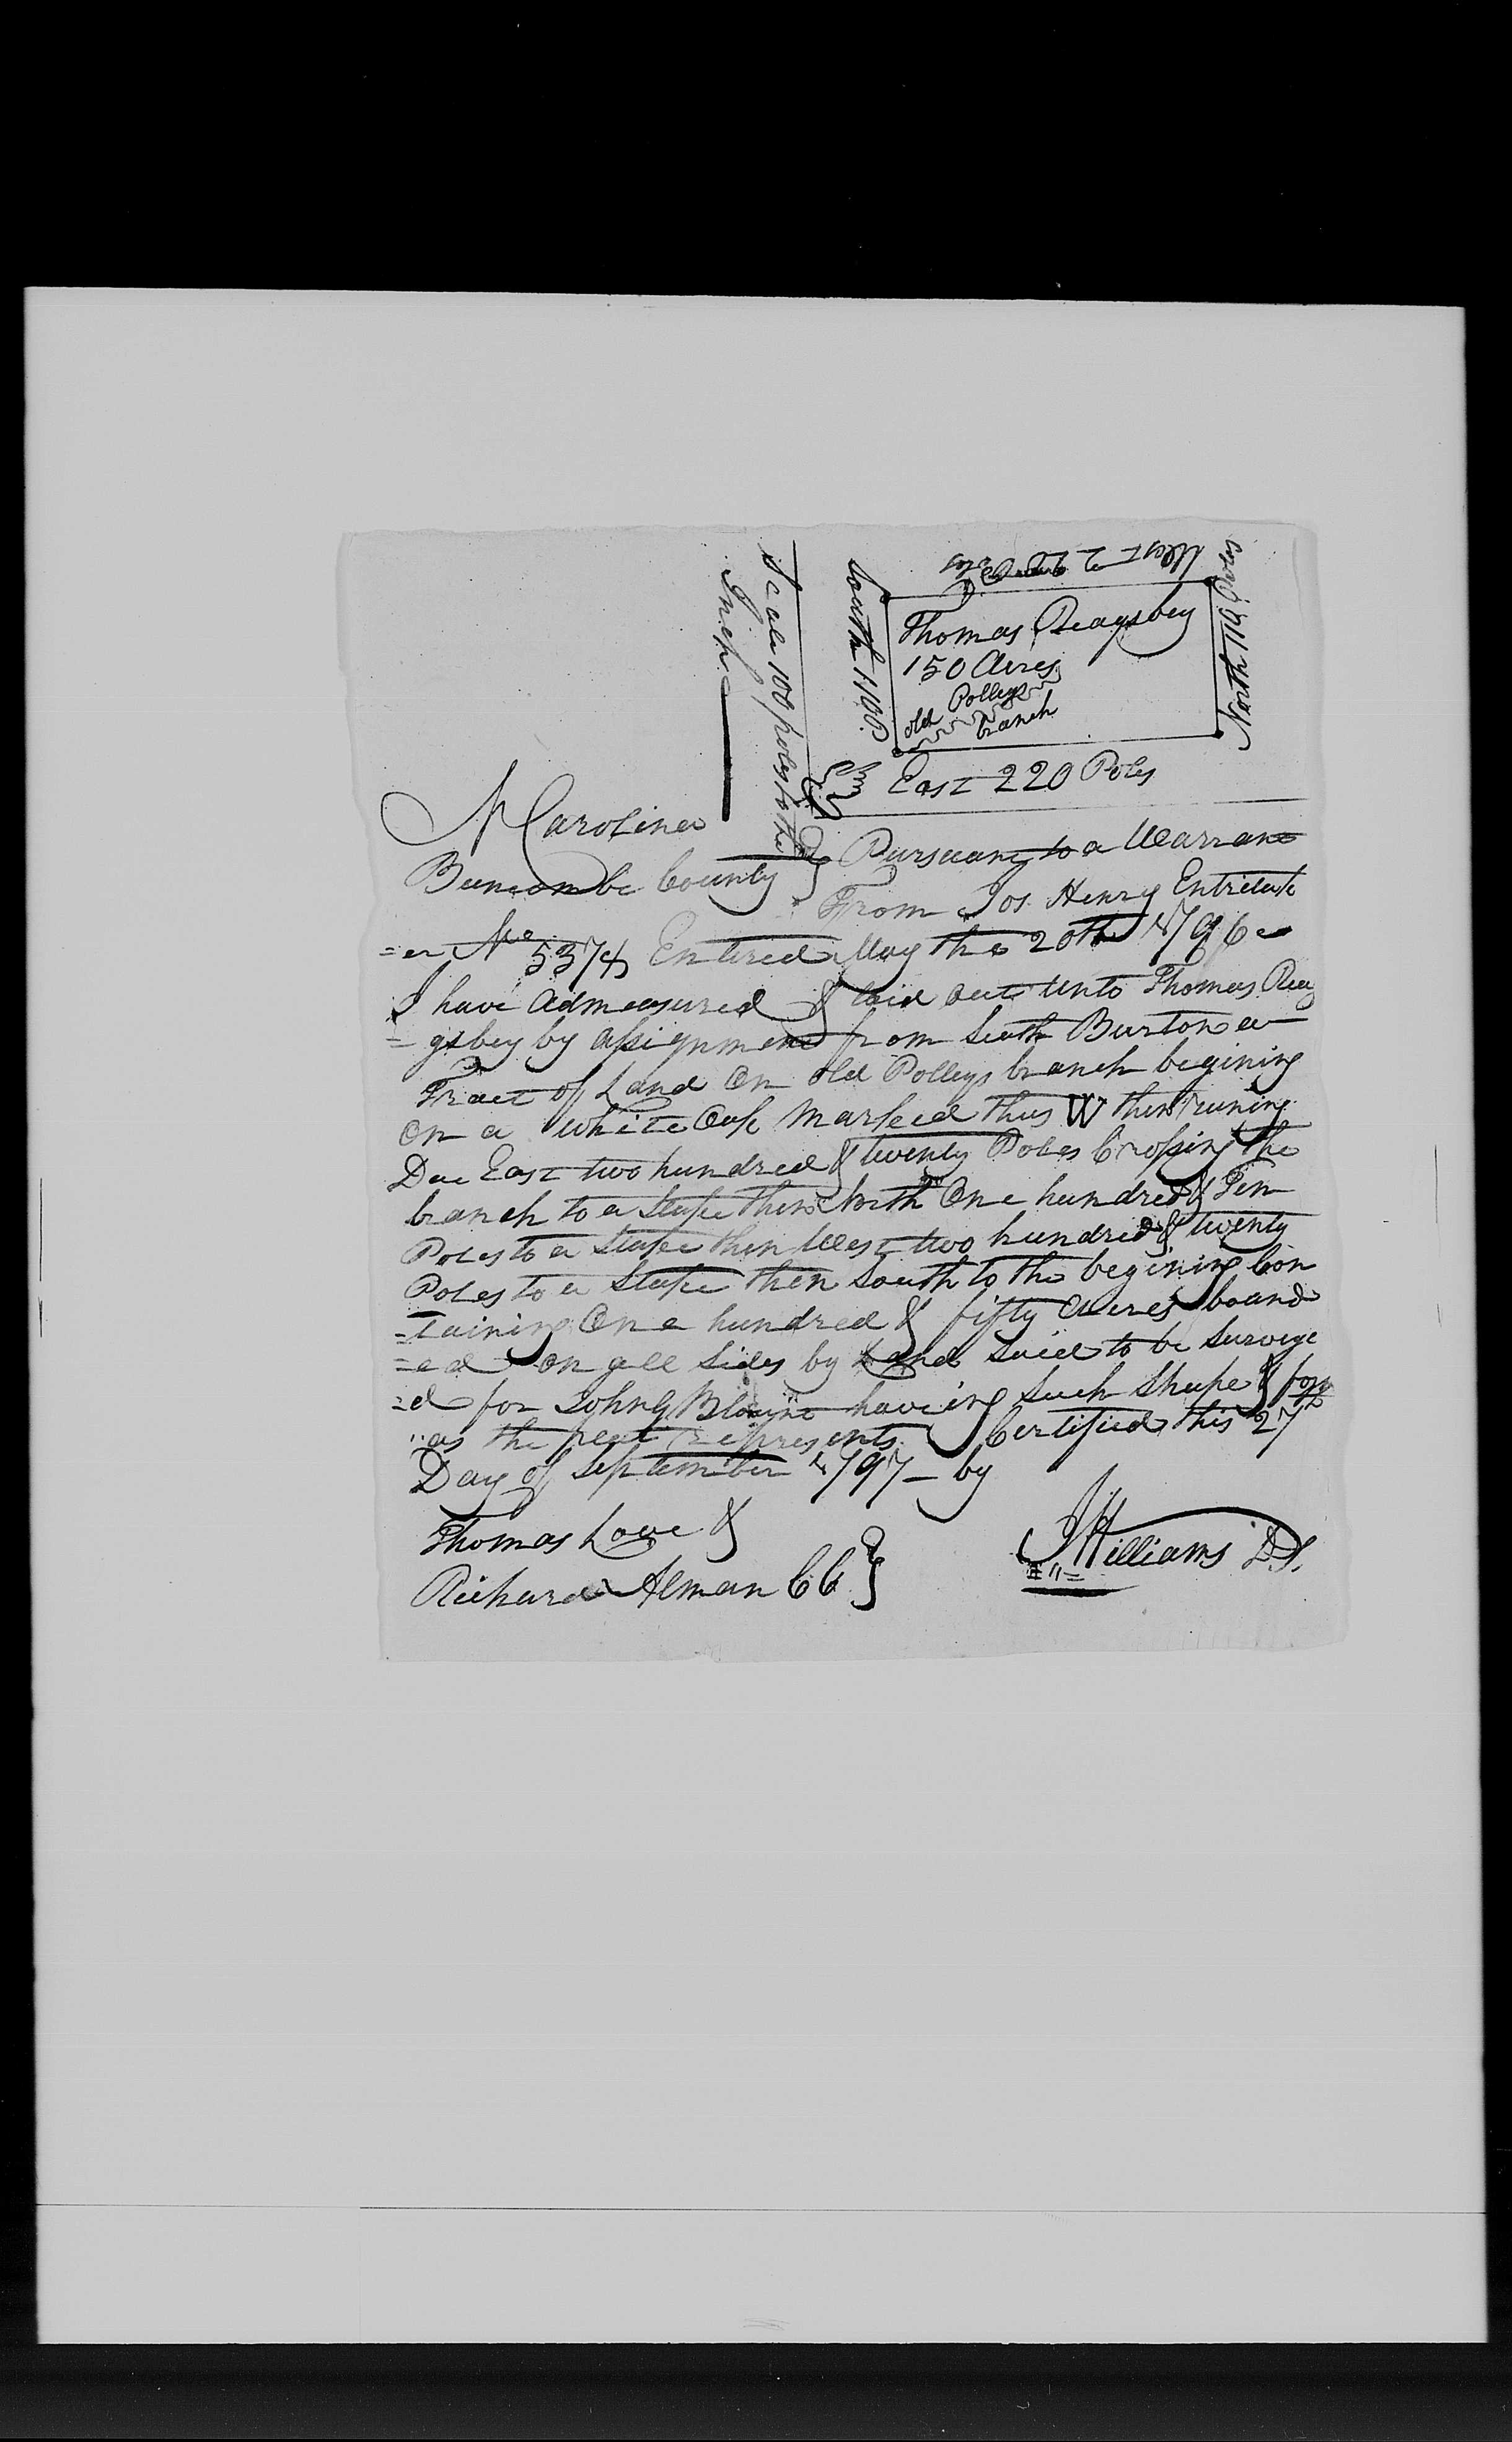 West 220 Poles
North 110 Poles
South 110 P
Thomas Reagsbey
150 Acres
old Polleys
branch
East 220 Poles
Scale 100 poles to the
Inch
N Carolina
Buncombe County } Pursuant to a Warrant
From Jos Henry Entrietak
=er No 5374 Entired May the 20th 1796
I have admeasured & laid out unto Thomas Reag
=gsbey by assignment from Seath Burton a
Tract of Land On old Polleys branch begining
On a white Oak Marked thus W then runing
Due East two hundred & twenty Poles Crossing the
branch to a Stake then North One hundred & Ten
Poles to a Stake then West two hundred & twenty
Poles to a Stake then South to the begining Con
=taining One hundred & fifty Acres bound
=ed on all Sides by Land Said to be Surveye
=d for John G Blount haveing Such Shape & form
"as the peat represents. Certified this 27th
Day of September 1797 - by
Thomas Love &
Richard Alman CC }
J Williams DS.